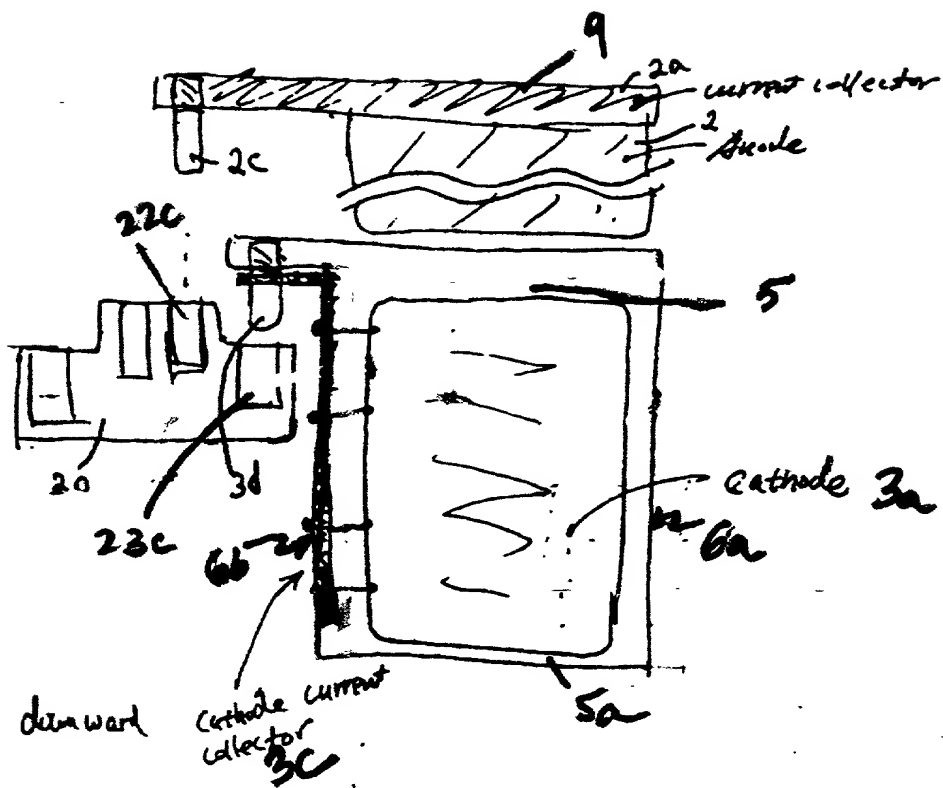 9
2a
current collector
2
Anode
2c
22c
5
20
3d
Cathode 3a
23c
6b
6a
downward
Cathode current
collector
3C
5a